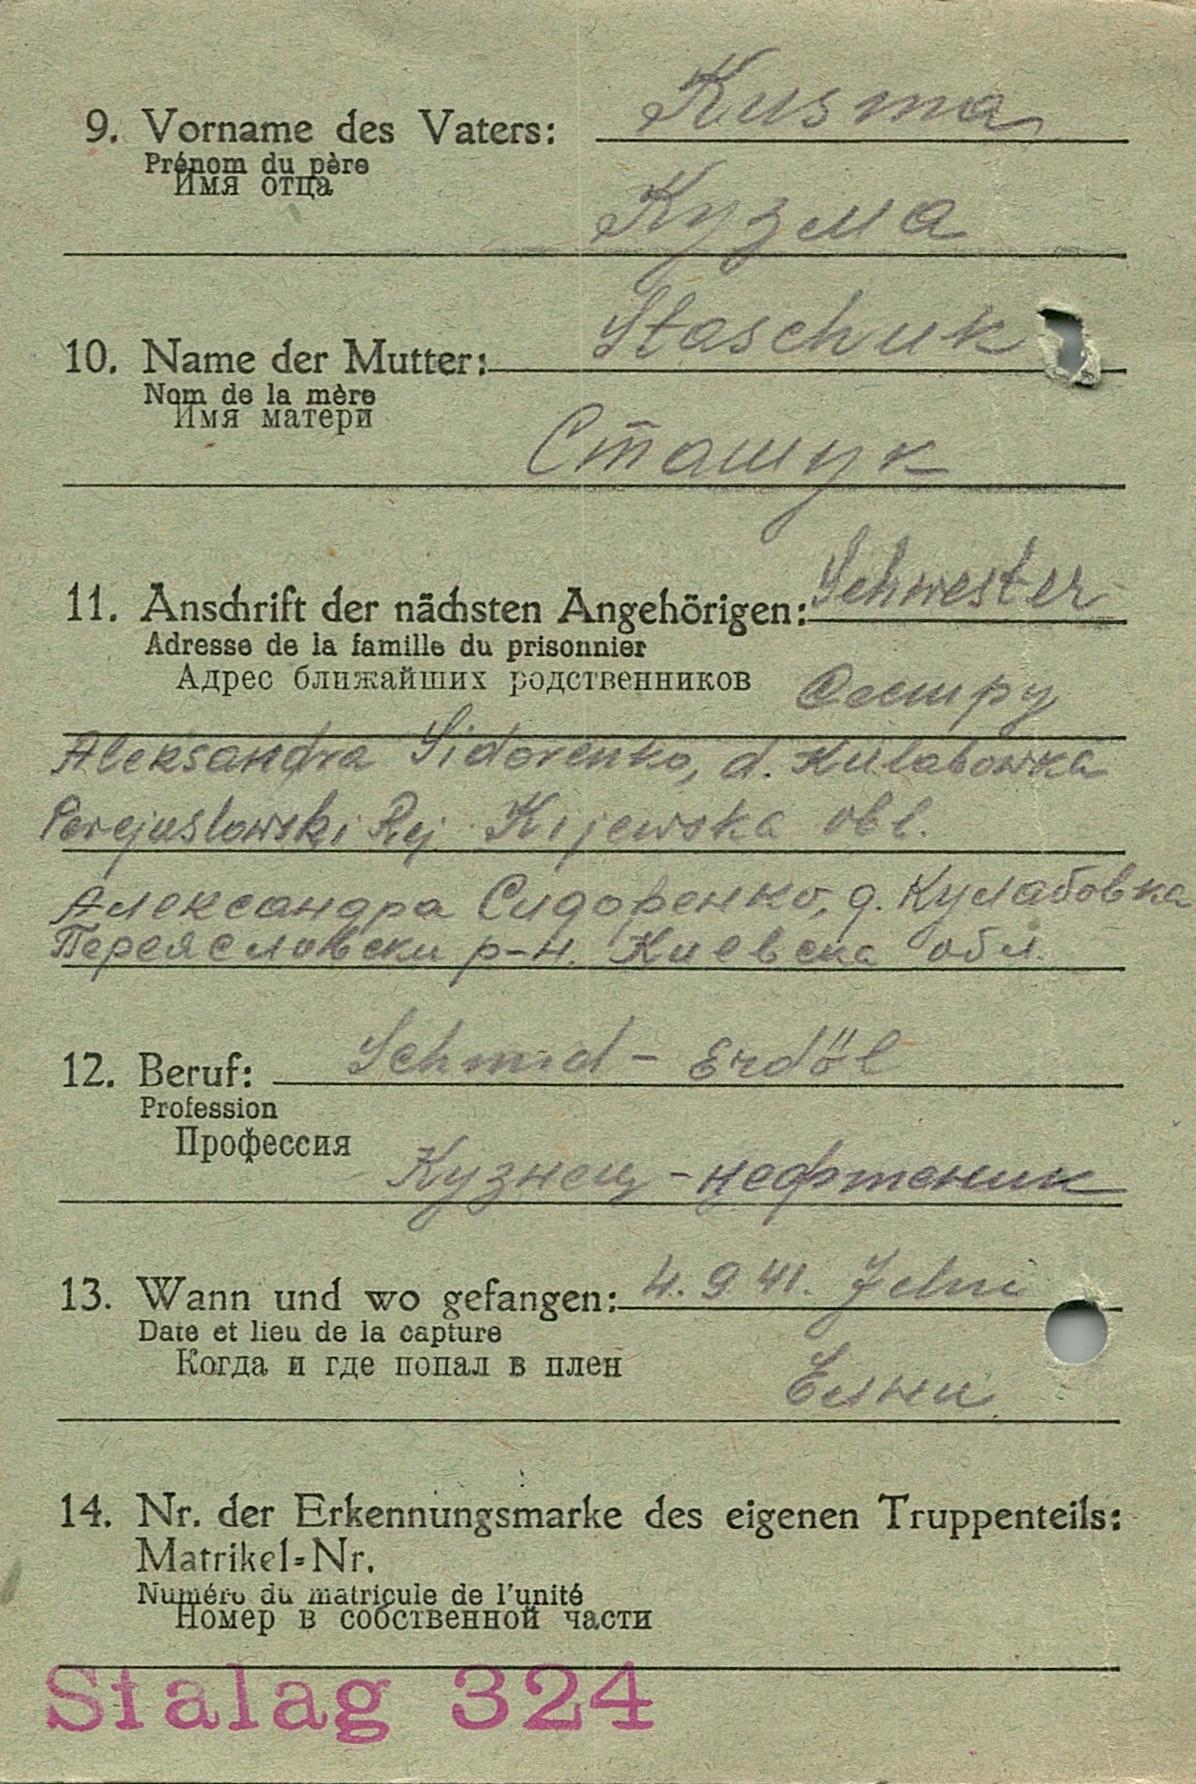 9. Vorname des Vaters: Kusma
Prénom du père
Имя отца
Кузма
10. Name der Mutter: Staschuk
Nom de la mère
Имя матери
Сташук
11. Anschrift der nächsten Angehörigen: Schwester
Adresse de la famille du prisonnier
Адрес ближайших родственников Сестру
Aleksandra Sidorenko, d. Kulabowka
Perejaslowski Rej. Kijewska obl.
Александра Сидоренко, д. Кулабовка
Переясловски р-н. Киевска обл.
12. Beruf: Schmid - Erdöl
Profession
Профессия
Кузнец - нефтеник
13. Wann und wo gefangen: 4. 9. 41. Jelni
Date et lieu de la capture
Когда и где попал в плен
Елни
14. Nr. der Erkennungsmarke des eigenen Truppenteils:
Matrikel-Nr.
Numéro du matricule de l'unité
Номер в собственной части
Stalag 324